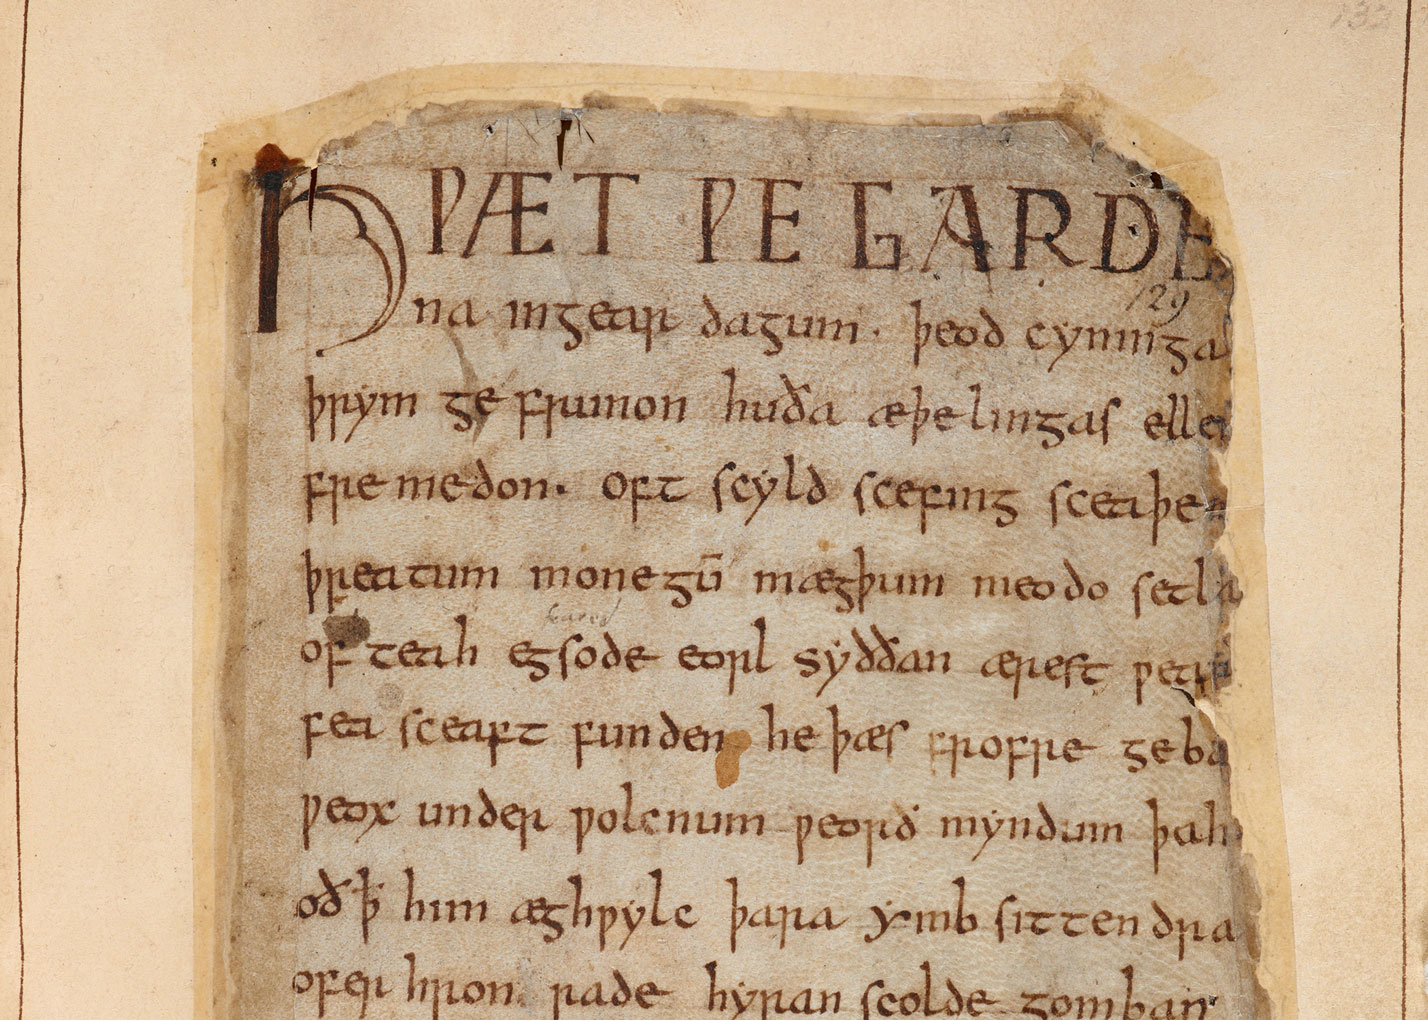 132
HǷÆT ǷE GARDE
129
na in gear dagum · þeod cyninga
þrym ge frunon hu ða æþelingas ellen
fremedon. Oft scyld scefing sceaþe
þreatum monegū mægþum meodo setla
of teah egsode eorl syððan ærest ƿear
fea sceaft funden he þæs frofre geba
ƿeox under ƿolcnum ƿeorð myndum þah
oð ꝥ him æghƿylc þara ymb sittendra
ofer hron rade hyran scolde gomban